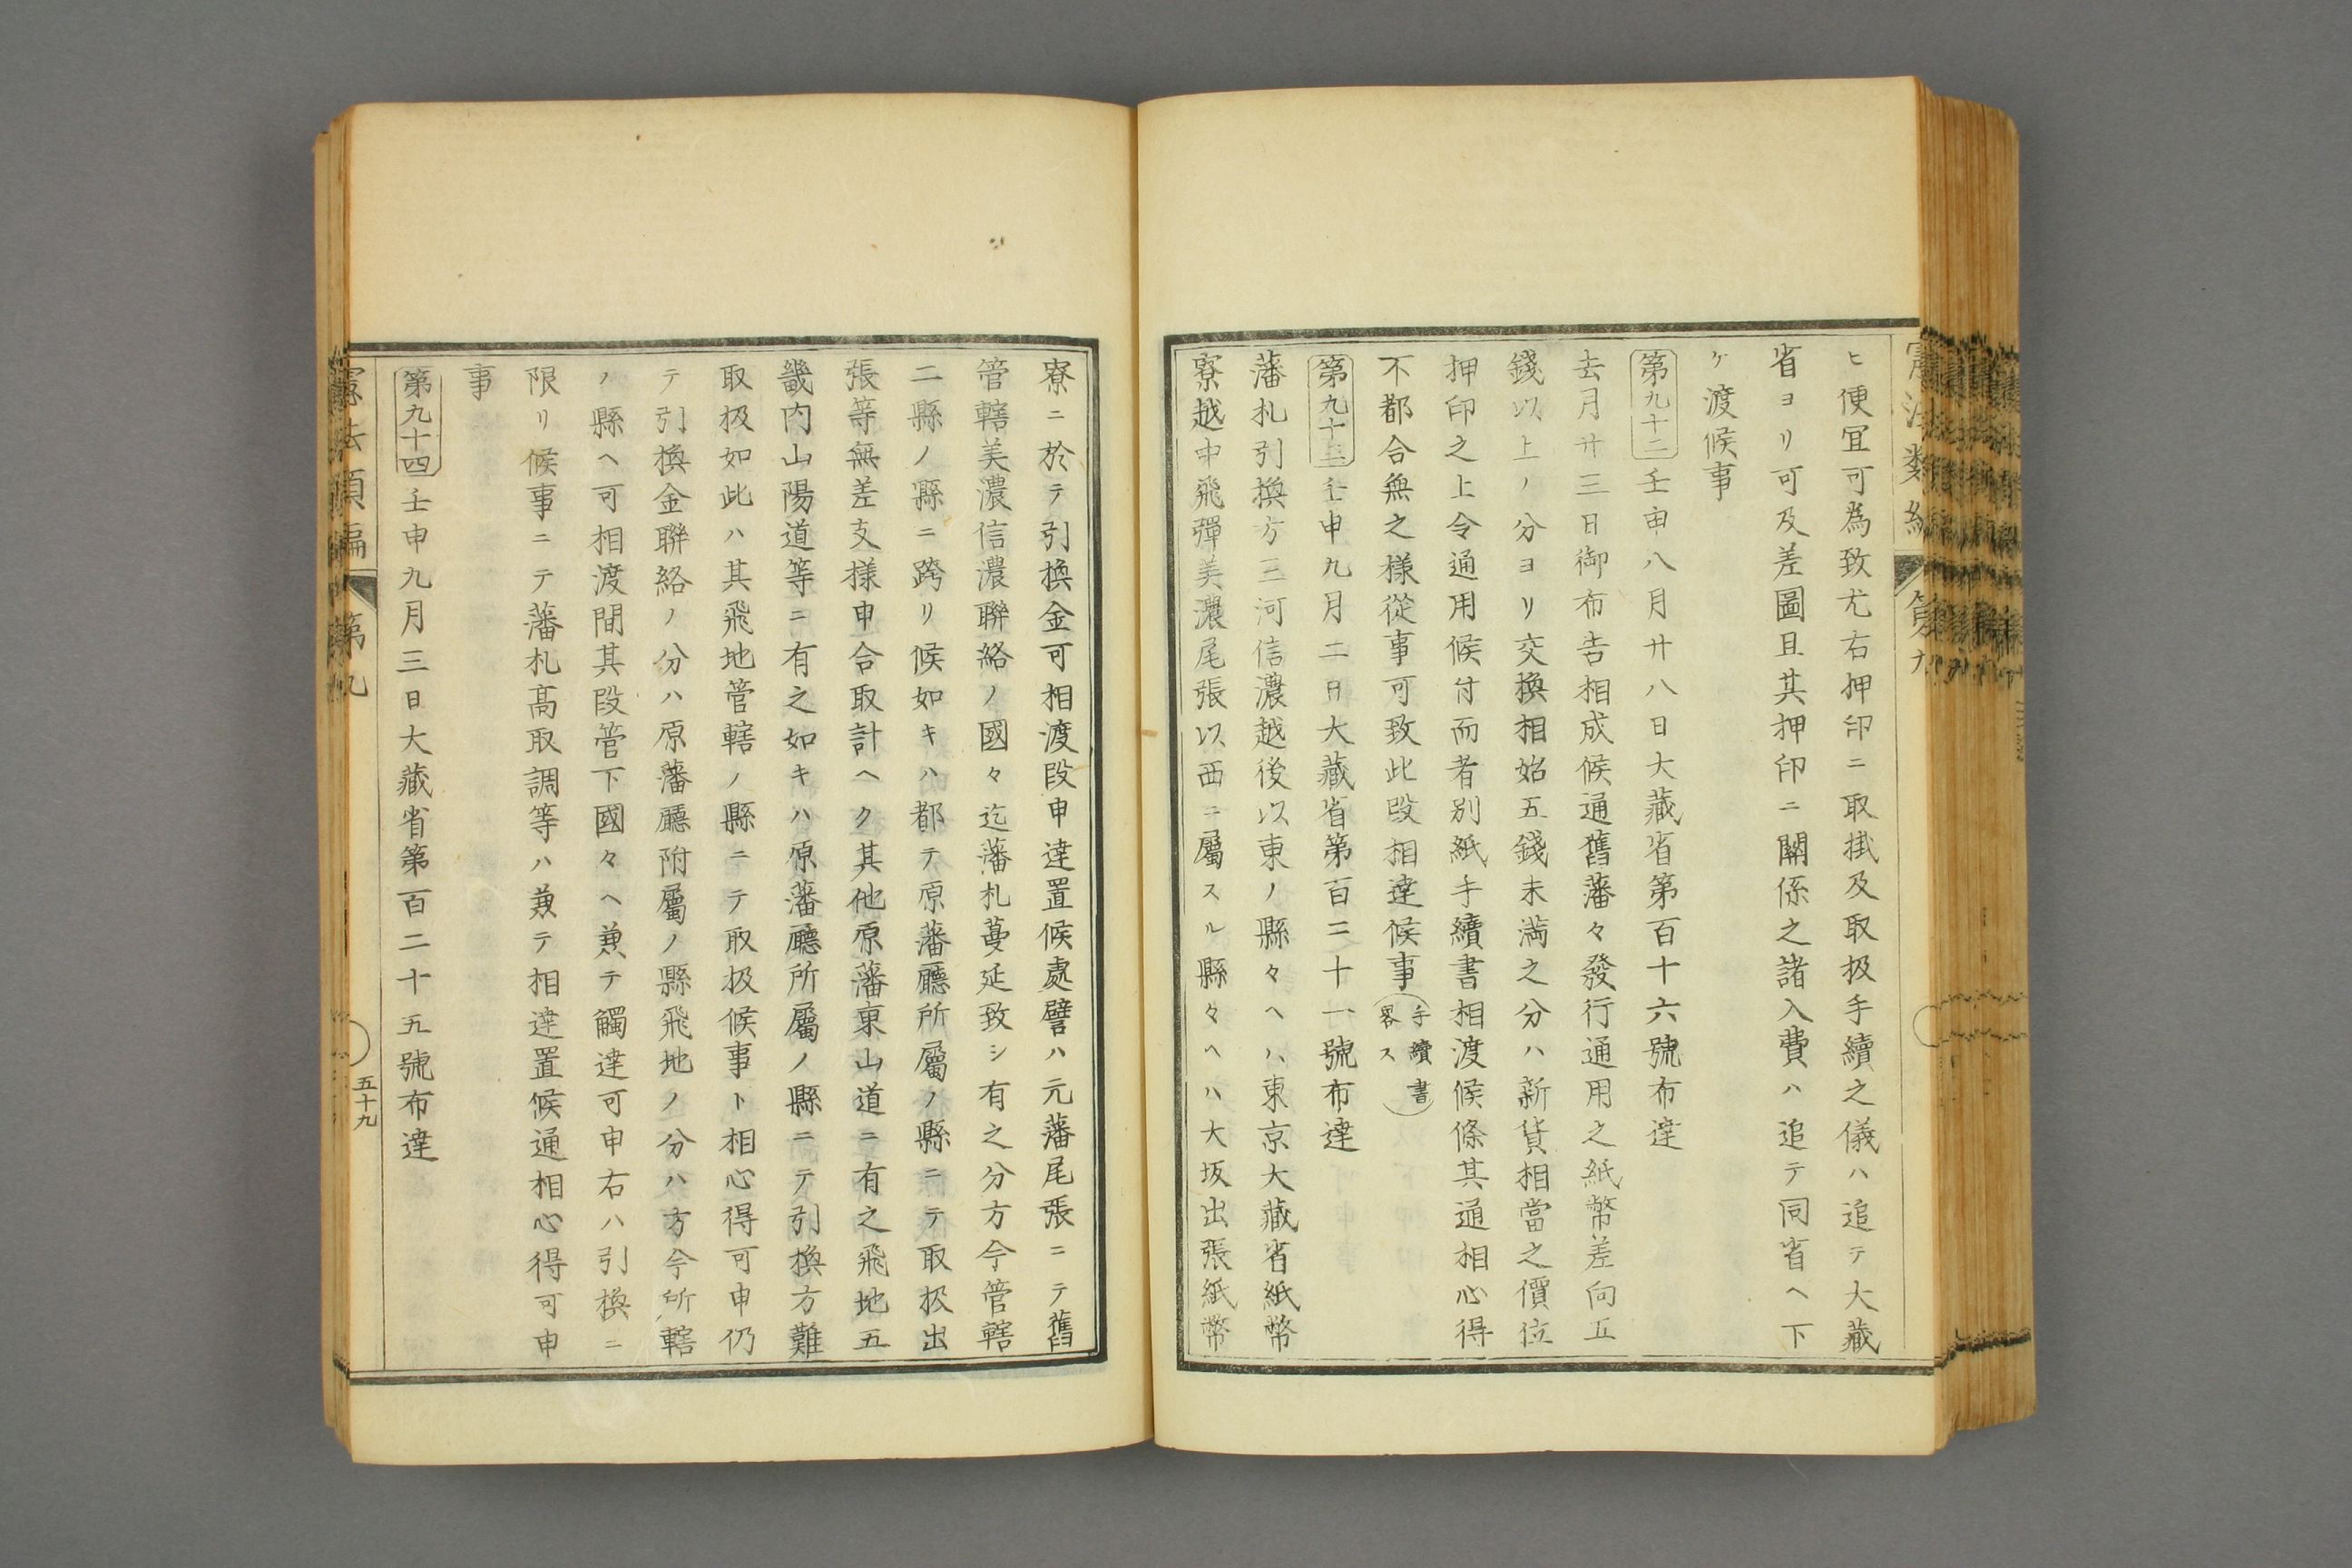 ヒ便冝可為致尤右押印ニ取掛及取扱手續之儀ハ追テ大藏
省ヨリ可及差圖且其押印ニ關係之諸入費ハ追テ同省ヘ下
ケ渡候事
第九十二 壬申八月廿八日大藏省第百十六號布達
去月廿三日御布告相成候通舊藩々發行通用之紙幣差向五
錢以上ノ分ヨリ交換相始五錢未満之分ハ新貨相當之價位
押印之上令通用候付而者別紙手續書相渡候條其通相心得
不都合無之様從事可致此段相達候事（手續書畧ス）
第九十三 壬申九月二日大藏省第百二十一號布達
藩札引換方三河信濃越後以東ノ縣々ヘハ東京大藏省紙幣
寮越中飛彈美濃尾張以西ニ屬スル縣々ヘハ大坂出張紙幣
寮ニ於テ引換金可相渡段申達置候處譬ハ元藩尾張ニテ舊
管轄美濃信濃聯絡ノ國々迄藩札蔓延致シ有之分方今管轄
二縣ノ縣ニ跨リ候如キハ都テ原藩廳所屬ノ縣ニテ取扱出
張等無差支様申合取計ヘク其他原藩東山道ニ有之飛地五
畿内山陽道等ニ有之如キハ原藩廳所屬ノ縣ニテ引換方難
取扱如此ハ其飛地管轄ノ縣ニテ取扱候事ト相心得可申仍
テ引換金聯絡ノ分ハ原藩廳附屬ノ縣飛地ノ分ハ方今所轄
ノ縣ヘ可相渡間其段管下國々ヘ兼テ觸達可申右ハ引換ニ
限リ候事ニテ藩札髙取調等ハ兼テ相達置候通相心得可申
事
第九十四 壬申九月三日大藏省第百二十五號布達
憲法類編 第九
五十九